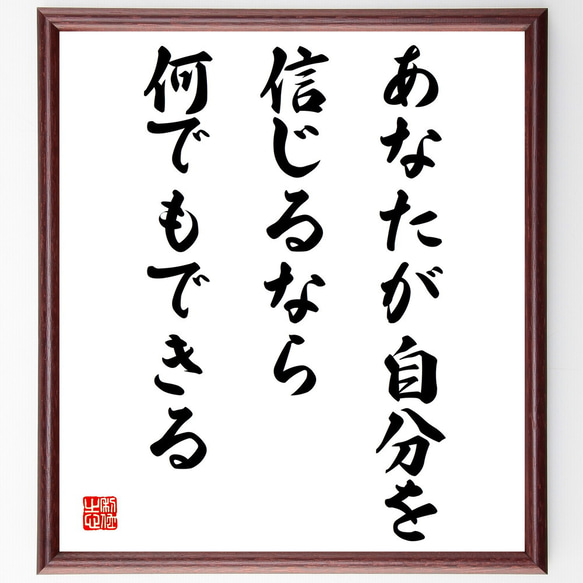 あなたが自分を
信じるなら
何でもできる